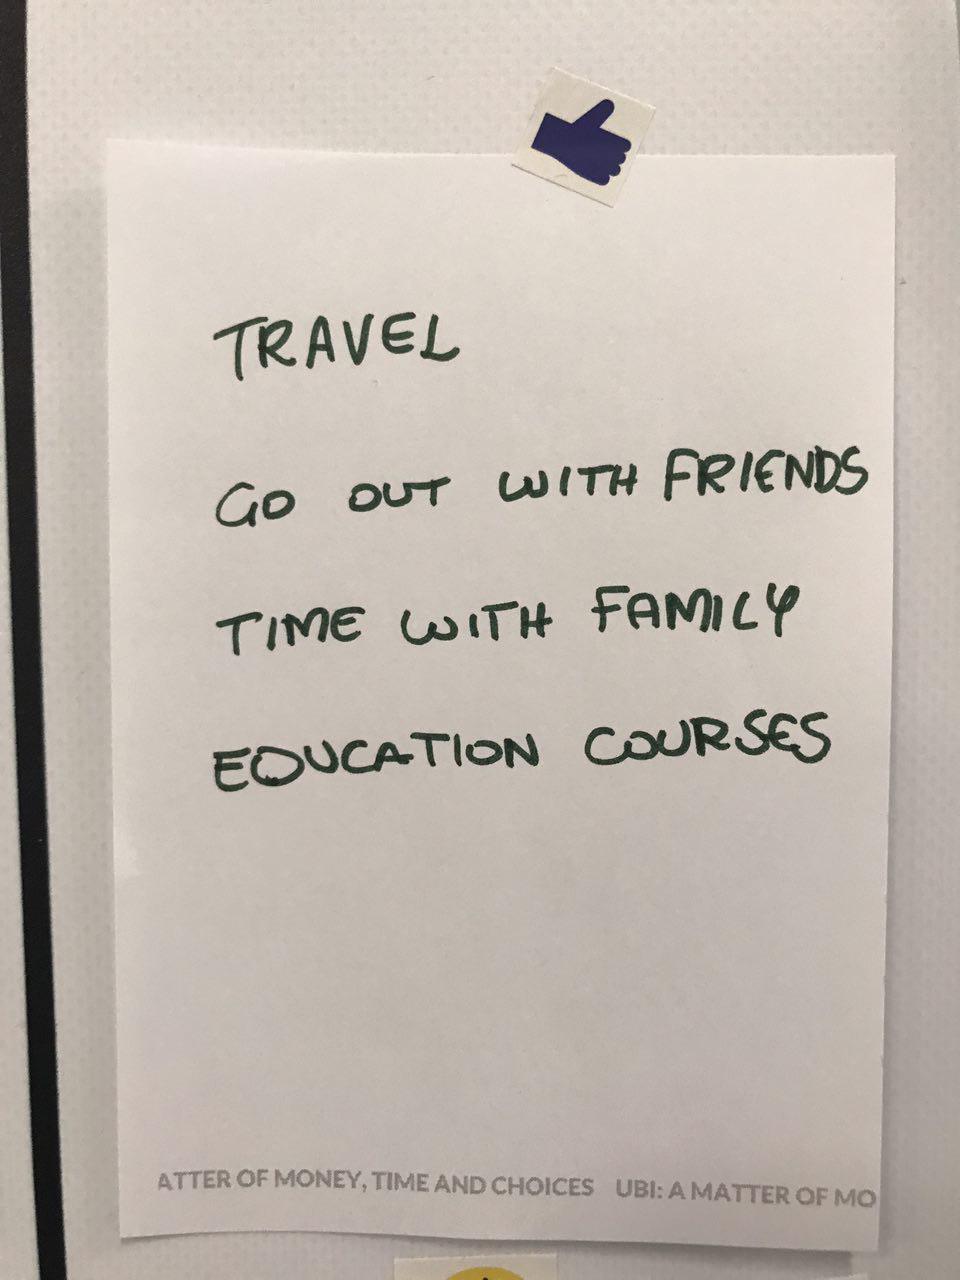 TRAVEL
GO OUT WITH FRIENDS
TIME WITH FAMILY
EDUCATION COURSES
ATTER OF MONEY, TIME AND CHOICES UBI: A MATTER OF MO